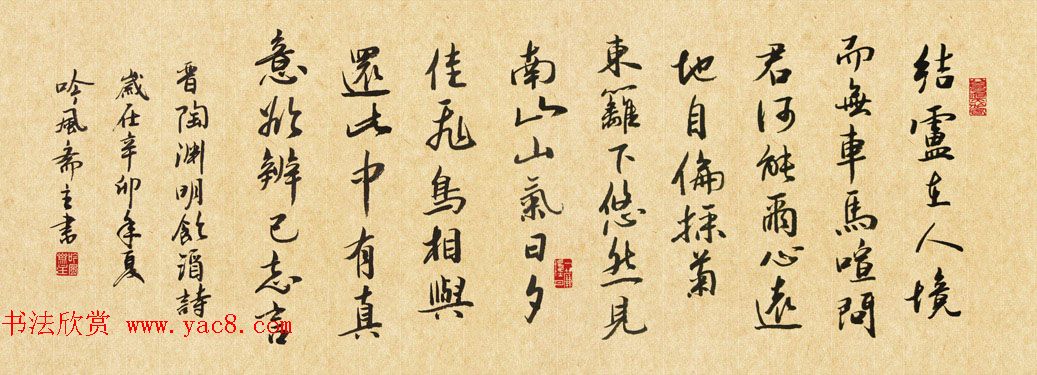 結盧在人境
而無車馬喧問
君何能爾心遠
地自偏採菊
東籬下悠然見
南山山氣日夕
佳飛鳥相與
還此中有真
意欲辨已忘言
晉陶淵明飲酒詩
歲在辛卯年夏
吟風齋主書
书法欣赏 www.yac8.com